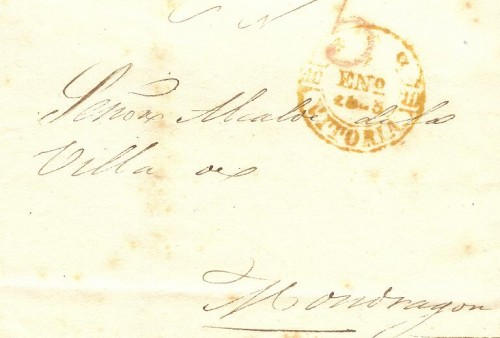 S N
5
ENº
VITORIA
Señor Alcalde de la
Villa de
Mondragon